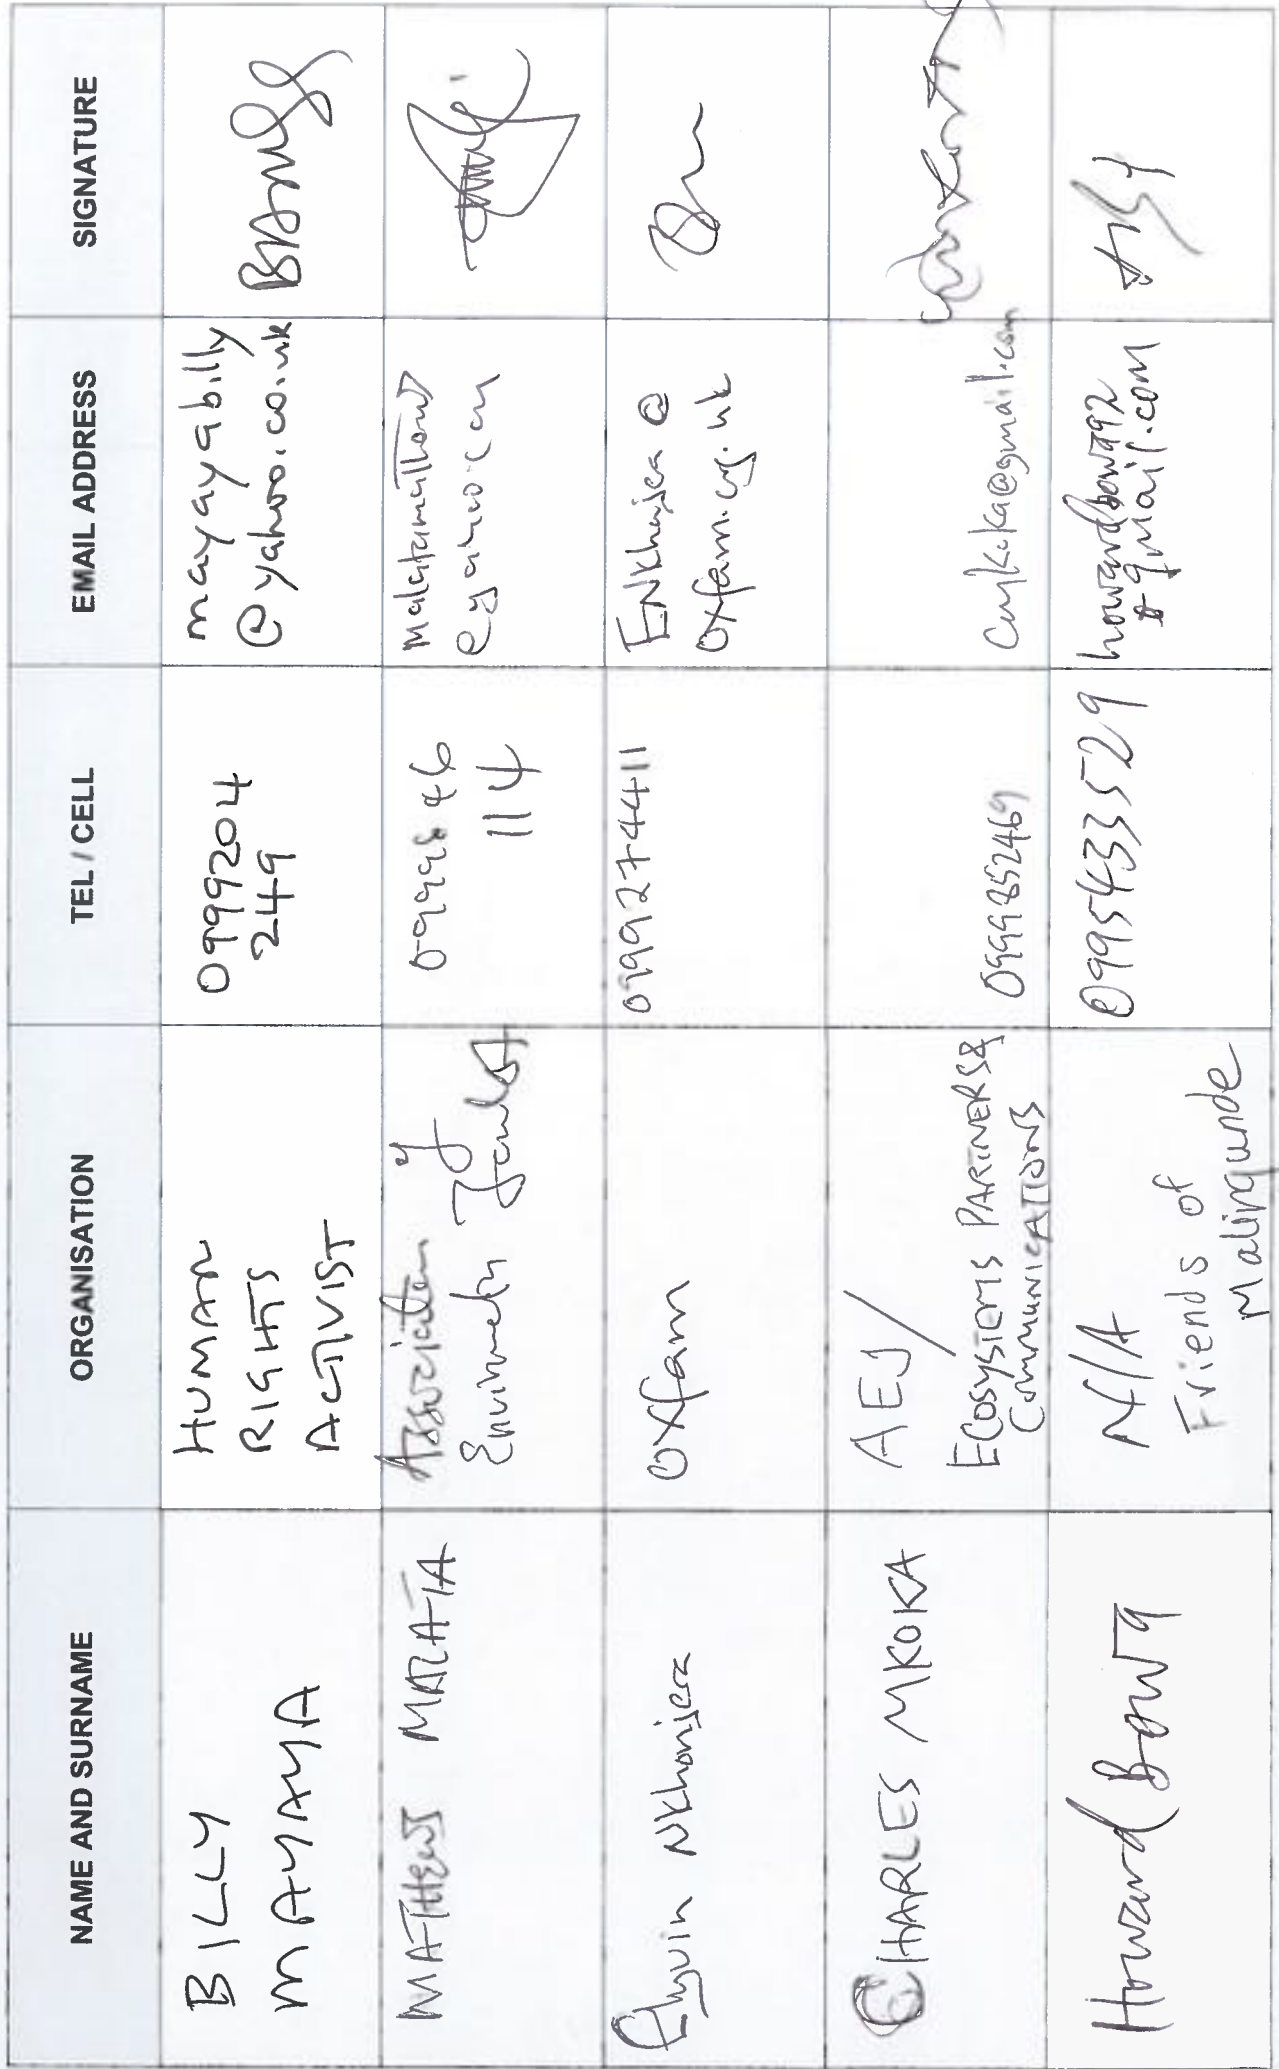 NAME AND SURNAME
ORGANISATION
TEL / CELL
EMAIL ADDRESS
SIGNATURE
BILLY
MAYAYA
HUMAN
RIGHTS
ACTIVIST
0999204
249
mayayabilly
@yahoo.co.uk
MATHEWS MALATA
Association of
114
Nkhonjera
Oxfam
0999274411
Oxfam.org.uk
CHARLES MKOKA
AEJ/
ECOSYSTEMS PARTNERS &
COMMUNICATIONS
0999852469
@gmail.com
Howard Bowa
N/A
Friends of
Malingunde
0995433529
howardbowa92
@gmail.com